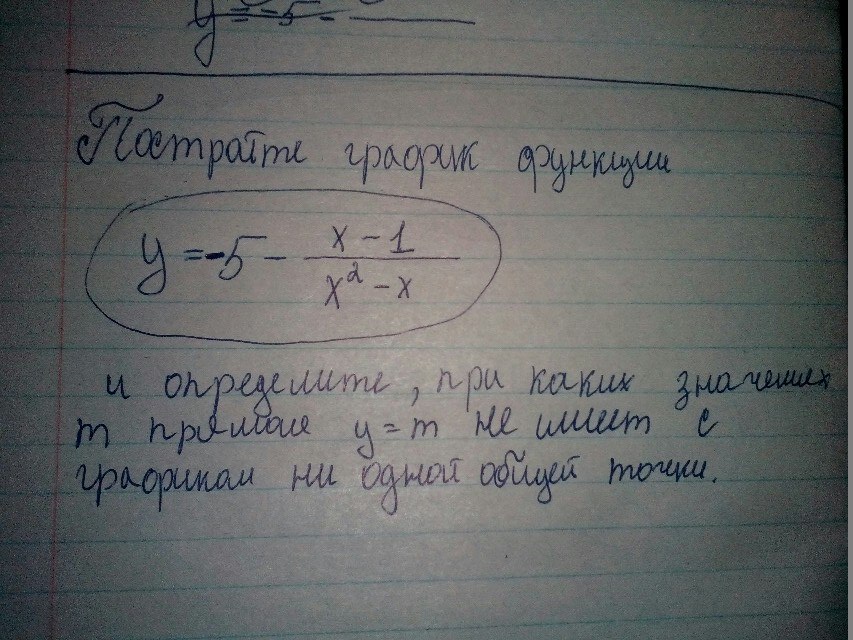 y = -5 -
Постройте график функции
y = -5 - \frac{x - 1}{x^2 - x}
и определите, при каких значениях
m прямая y = m не имеет с
графиком ни одной общей точки.